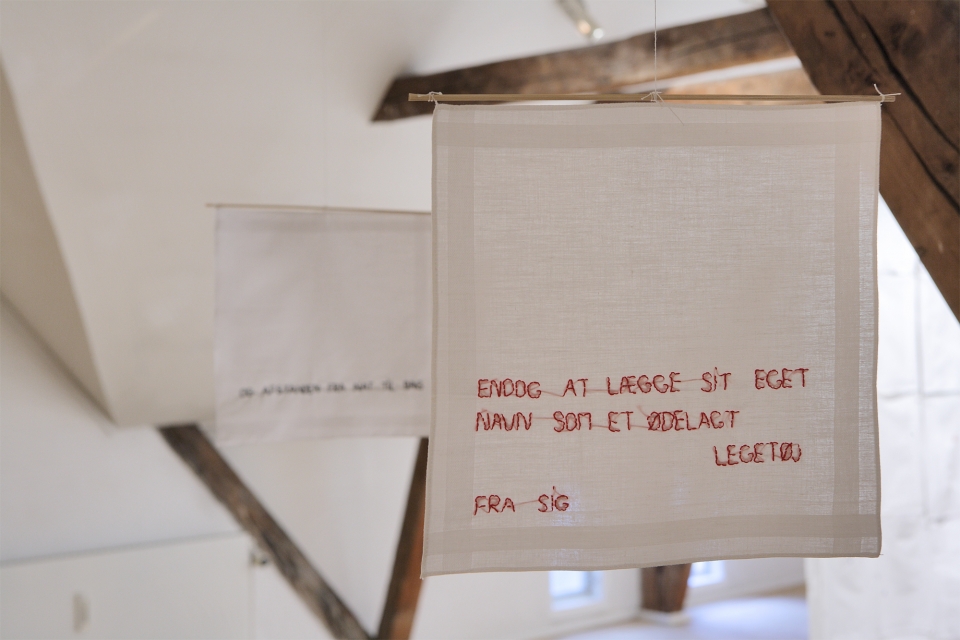 OG AFSTANDEN FRA NAT TIL DAG
ENDOG AT LÆGGE SIT EGET
NAVN SOM ET ØDELAGT
LEGETØJ
FRA SIG